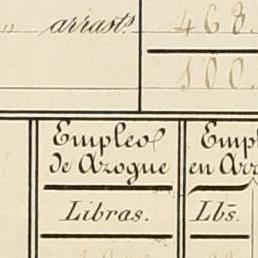 " arrast.s 468.
100.
Empleo
de Azogue
Libras.
Emp
en Arr
Lbs.